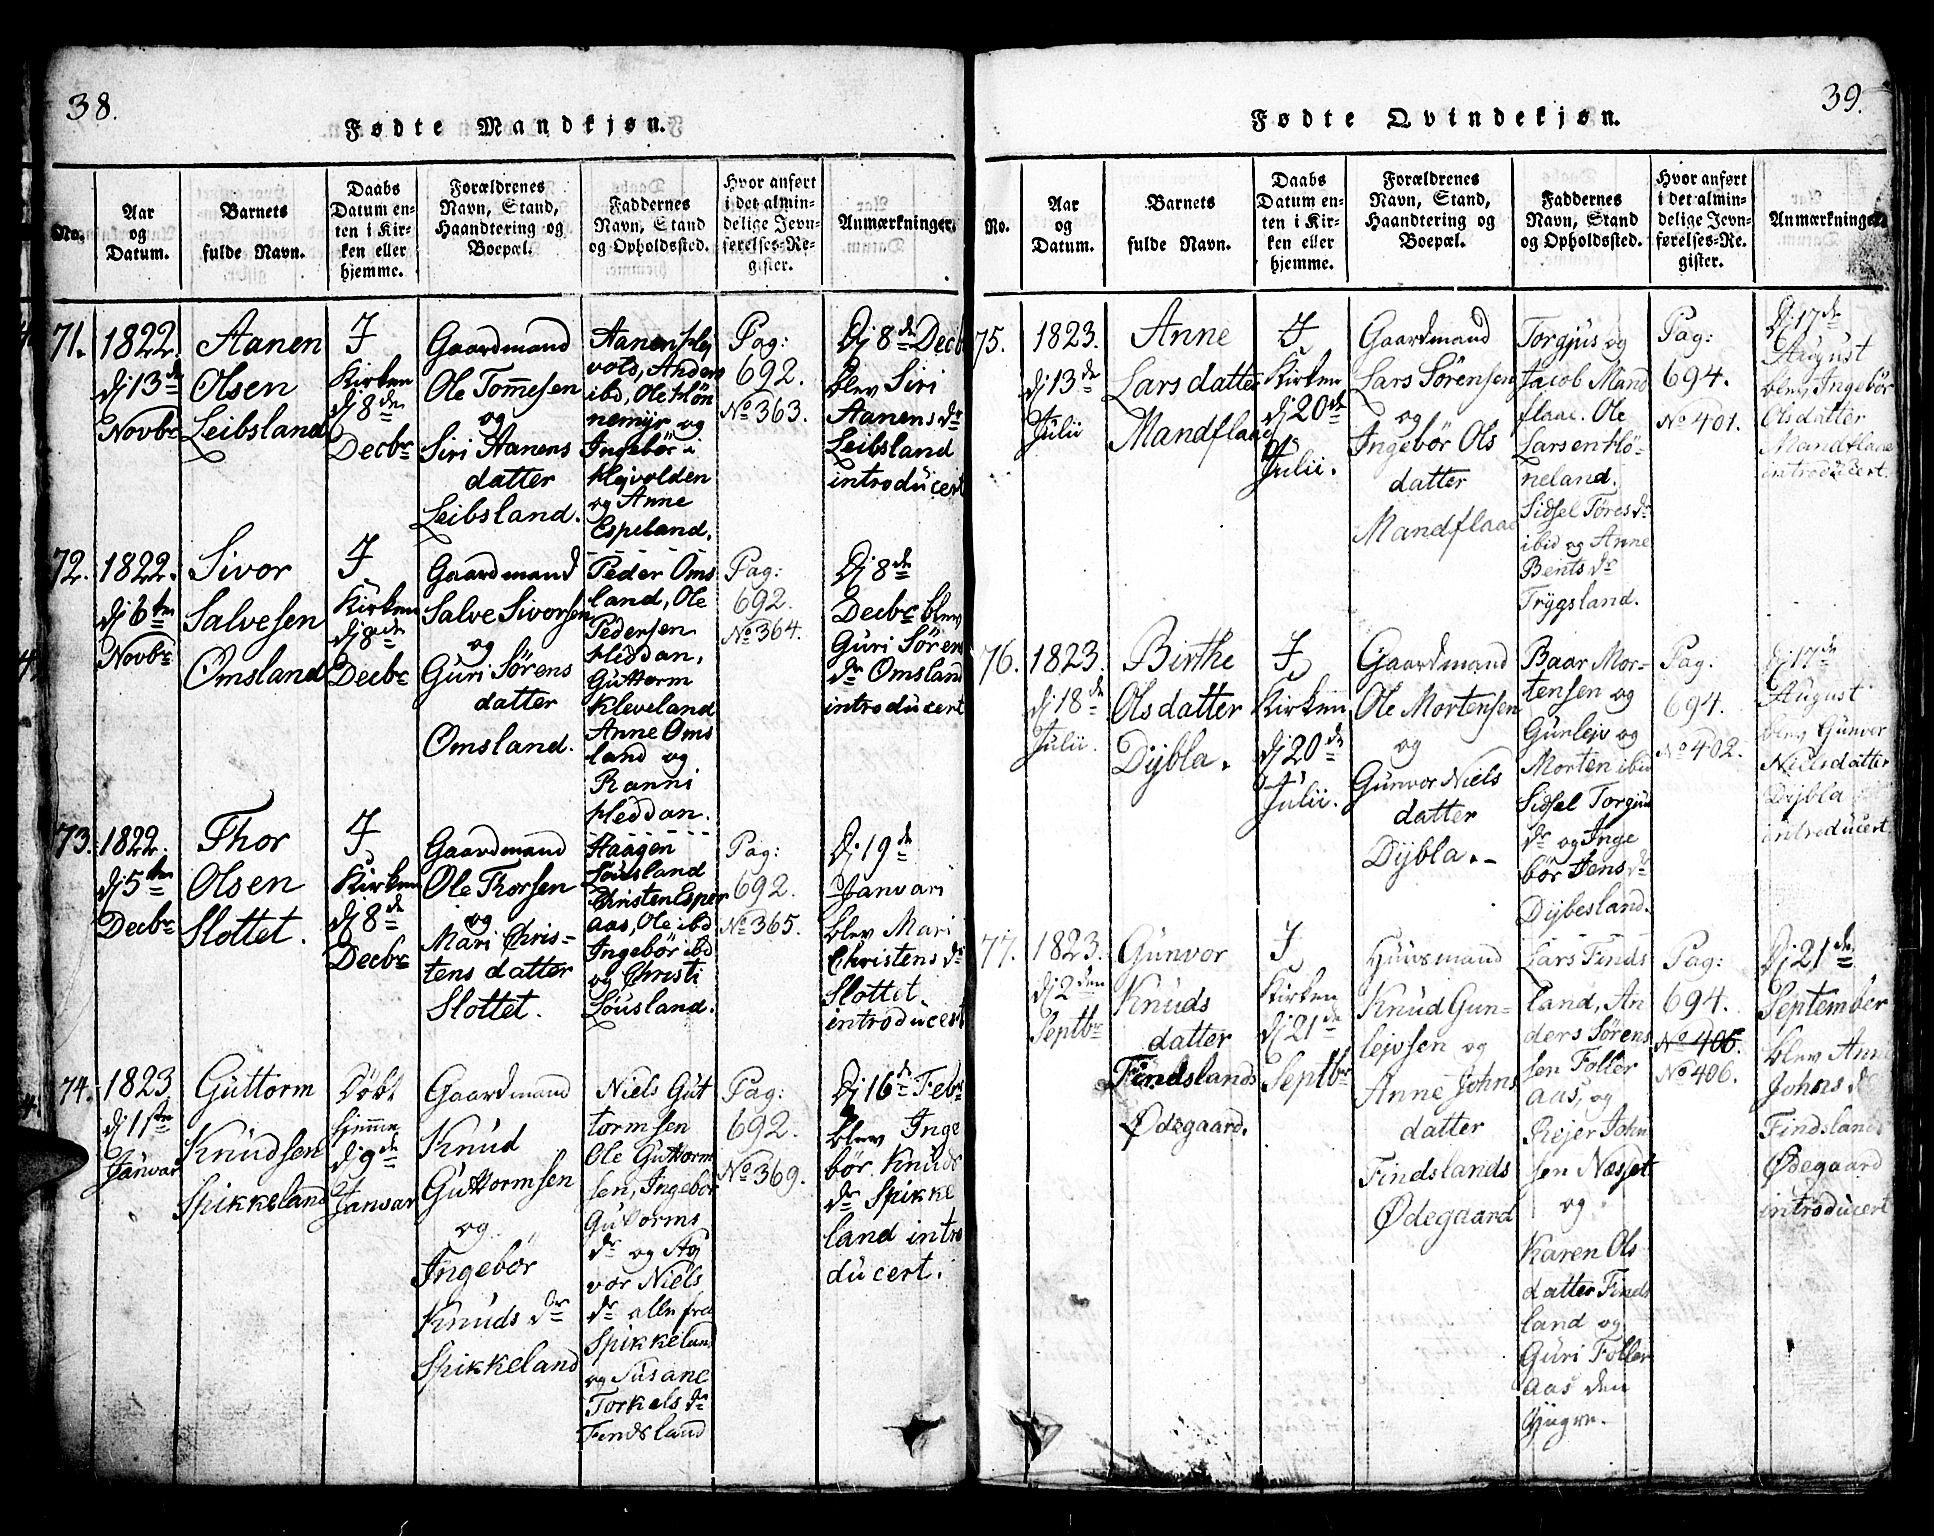 38.
Fødte Mandkjøn.
No.
Aar
og
Datum.
Barnets
fulde Navn.
Daabs
Datum en-
ten i Kir-
ken eller
hjemme.
Forældrenes
Navn, Stand,
Haandtering og
Boepæl.
Faddernes
Navn, Stand
og Opholdssted.
Hvor anført
i det almin-
delige Jevn-
førelses-Re-
gister.
Anmærkninger.
71.
1822.
dj 13de
Novbr
Aanen
Olsen
Leibsland
I
Kirken
dj 8de
Decbr
Gaardmand
Ole Tom̄esen
og
Siri Aanens
datter
Leibsland.
Aanen Høj
vold, Anders
ibd, Ole Høn
nemyr og
Ingebør i
Højvolden
og Anne
Espeland.
Pag:
692.
No 363.
Dj 8de Decb
blev Siri
Aanens dr
Leibsland
introducert
72.
1822.
dj 6ten
Novbr
Sivor
Salvesen
Omsland
I
Kirken
dj 8de
Decbr
Gaardmand
Salve Sivorsen
og
Guri Sørens
datter
Omsland.
Peder Oms
land, Ole
Pedersen
Heddan,
Guttorm
Kleveland
Anne Oms
land og
Ranni
Heddan.
Pag:
692.
No 364.
Dj 8de
Decbr blev
Guri Søren
dr Omsland
introducert
73.
1822.
dj 5ten
Decbr
Thor
Olsen
Slottet.
I
Kirken
dj 8de
Decbr
Gaardmand
Ole Thorsen
og
Mari Chris-
tens datter
Slottet.
Haagen
Løusland
Christen Esper
aas, Ole ibd
Ingebør ibd
og Christi
Løusland.
Pag:
692.
No 365.
Dj 19de
Januari
blev Mari
Christens dr
Slottet
introducert
74.
1823
dj 1ste
Januar
Guttorm
Knudsen
Spikkeland
Döbt
hjemme
dj 9de
Januar
Gaardmand
Knud
Guttormsen
og
Ingebør
Knuds dr
Spikkeland
Niels Gut
tormsen
Ole Guttorm
sen, Ingebor
Guttorms
dr og Aş
vor Niels
dr alle fra
Spikkeland
og Susane
Torkels dr
Findsland
Pag:
692.
No 369.
Dj 16de Febr
blev Inge
bør Knuds
dr Spikke
land intro
ducert.
39.
Fødte Qvindekjøn.
No.
Aar
og
Datum.
Barnets
fulde Navn.
Daabs
Datum en-
ten i Kir-
ken eller
hjemme.
Forældrenes
Navn, Stand,
Haandtering og
Boepæl.
Faddernes
Navn, Stand
og Opholdsted.
Hvor anført
i det almin-
delige Jevn-
førelses-Re-
gister.
Anmærkninger.
75.
1823.
dj 13de
Julii
Anne
Lars datter
Mandflaae
I
Kirken
dj 20de
Julii.
Gaardmand
Lars Sørensen
og
Ingebør Ols
datter
Mandflaae
Torgjus og
Jacob Mand
flaae. Ole
Larsen Hö-
neland.
Sidsel Tøres dr
ibid og Anne
Bents dr
Trygsland.
Pag:
694.
No 401.
Dj 17de
August
blev Ingebör
Olsdatter
Mandflaae
introducert.
76.
1823.
dj 18de
Julii.
Birthe
Olsdatter
Dÿbla.
I
Kirken
dj 20de
Julii.
Gaardmand
Ole Mortensen
og
Gunvor Niels
datter
Dÿbla.-
Baar Mor-
tensen og
Gunlejv og
Morten ibid
Sidsel Torgius
dr og Inge
bør Jens dr
Dÿbesland.
Pag:
694.
No 402.
Dj 17de
August
blev Gunver
Nielsdatter
Dÿbla
introducert.
77.
1823.
dj 2den
Septbr
Gunvor
Knuds
datter
Findslands
Ødegaard.
I
Kirken
dj 21de
Septbr
Huusmand
Knud Gun-
lejvsen og
Anne Johns
datter
Findslands
Ødegaard
Lars Finds
land, An
ders Sørens
sen Foller
aas, og
Rejer John
sen Næsset
og
Karen Ols
datter Finds
land og
Guri Foller
aas den
Yngre.
Pag:
694.
No 405.
No 406.
Dj 21de
September
blev Anne
Johns dr
Findslands
Ødegaard
introducert